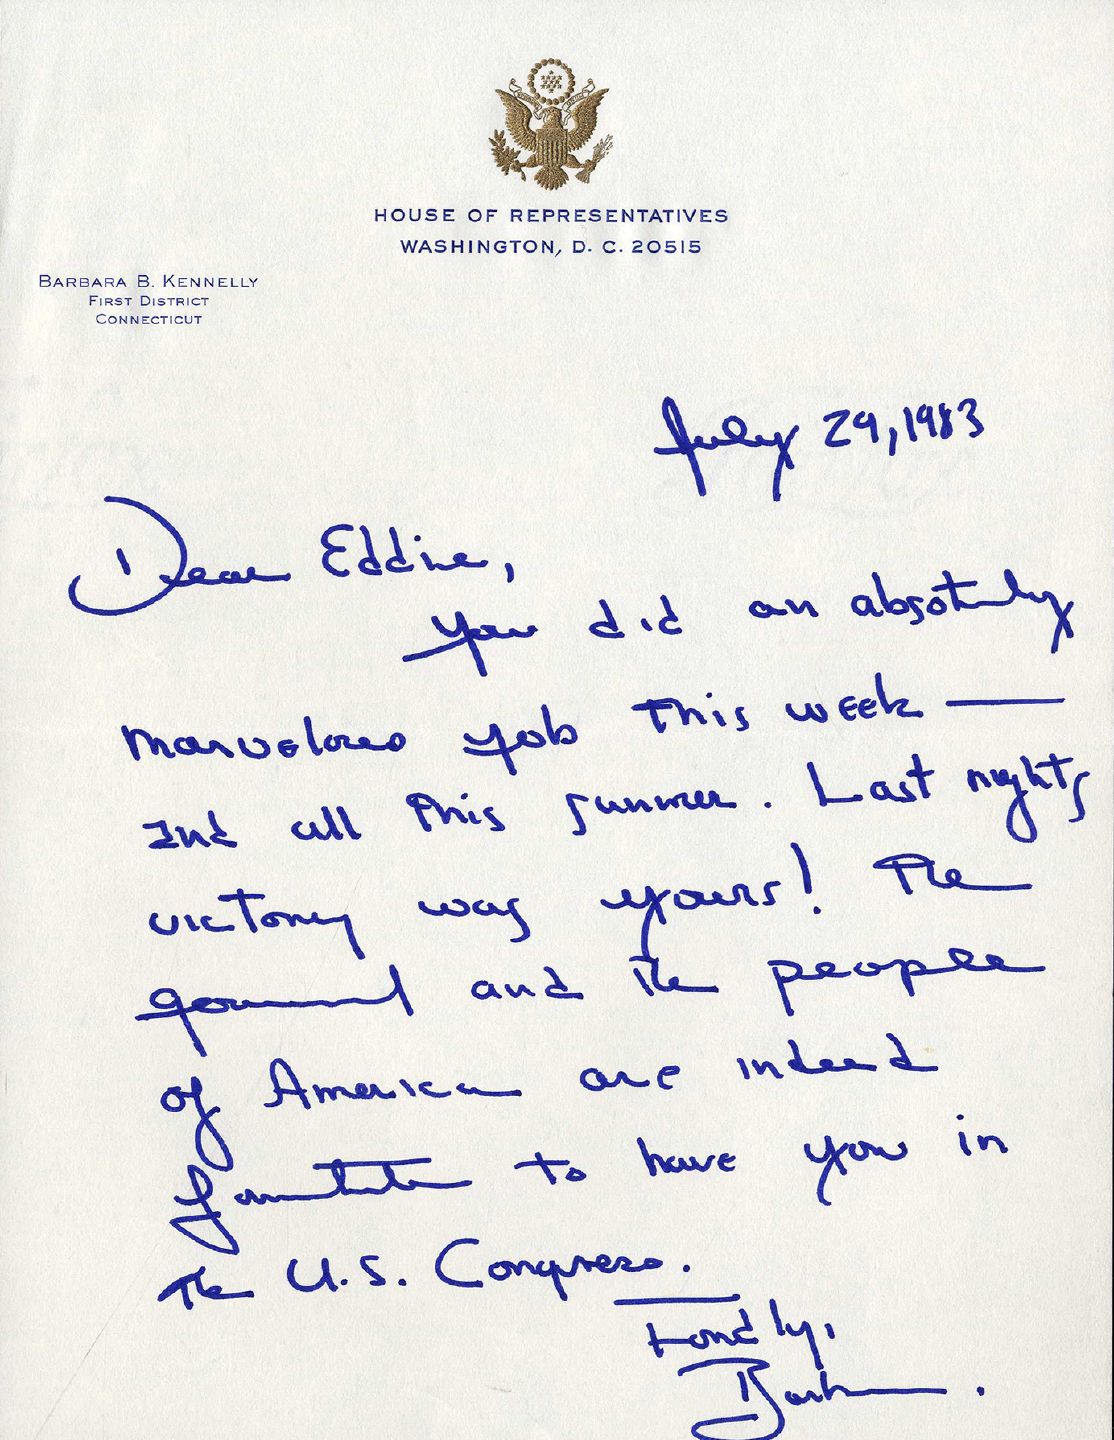 HOUSE OF REPRESENTATIVES
WASHINGTON, D. C. 20515
BARBARA B. KENNELLY
FIRST DISTRICT
CONNECTICUT
July 29, 1983
Dear Eddie,
You did an absolutely
marvelous job this week —
and all this summer. Last nights
victory was yours! The
government and the people
of America are indeed
fortunate to have you in
the U.S. Congress.
Fondly,
Barbara.